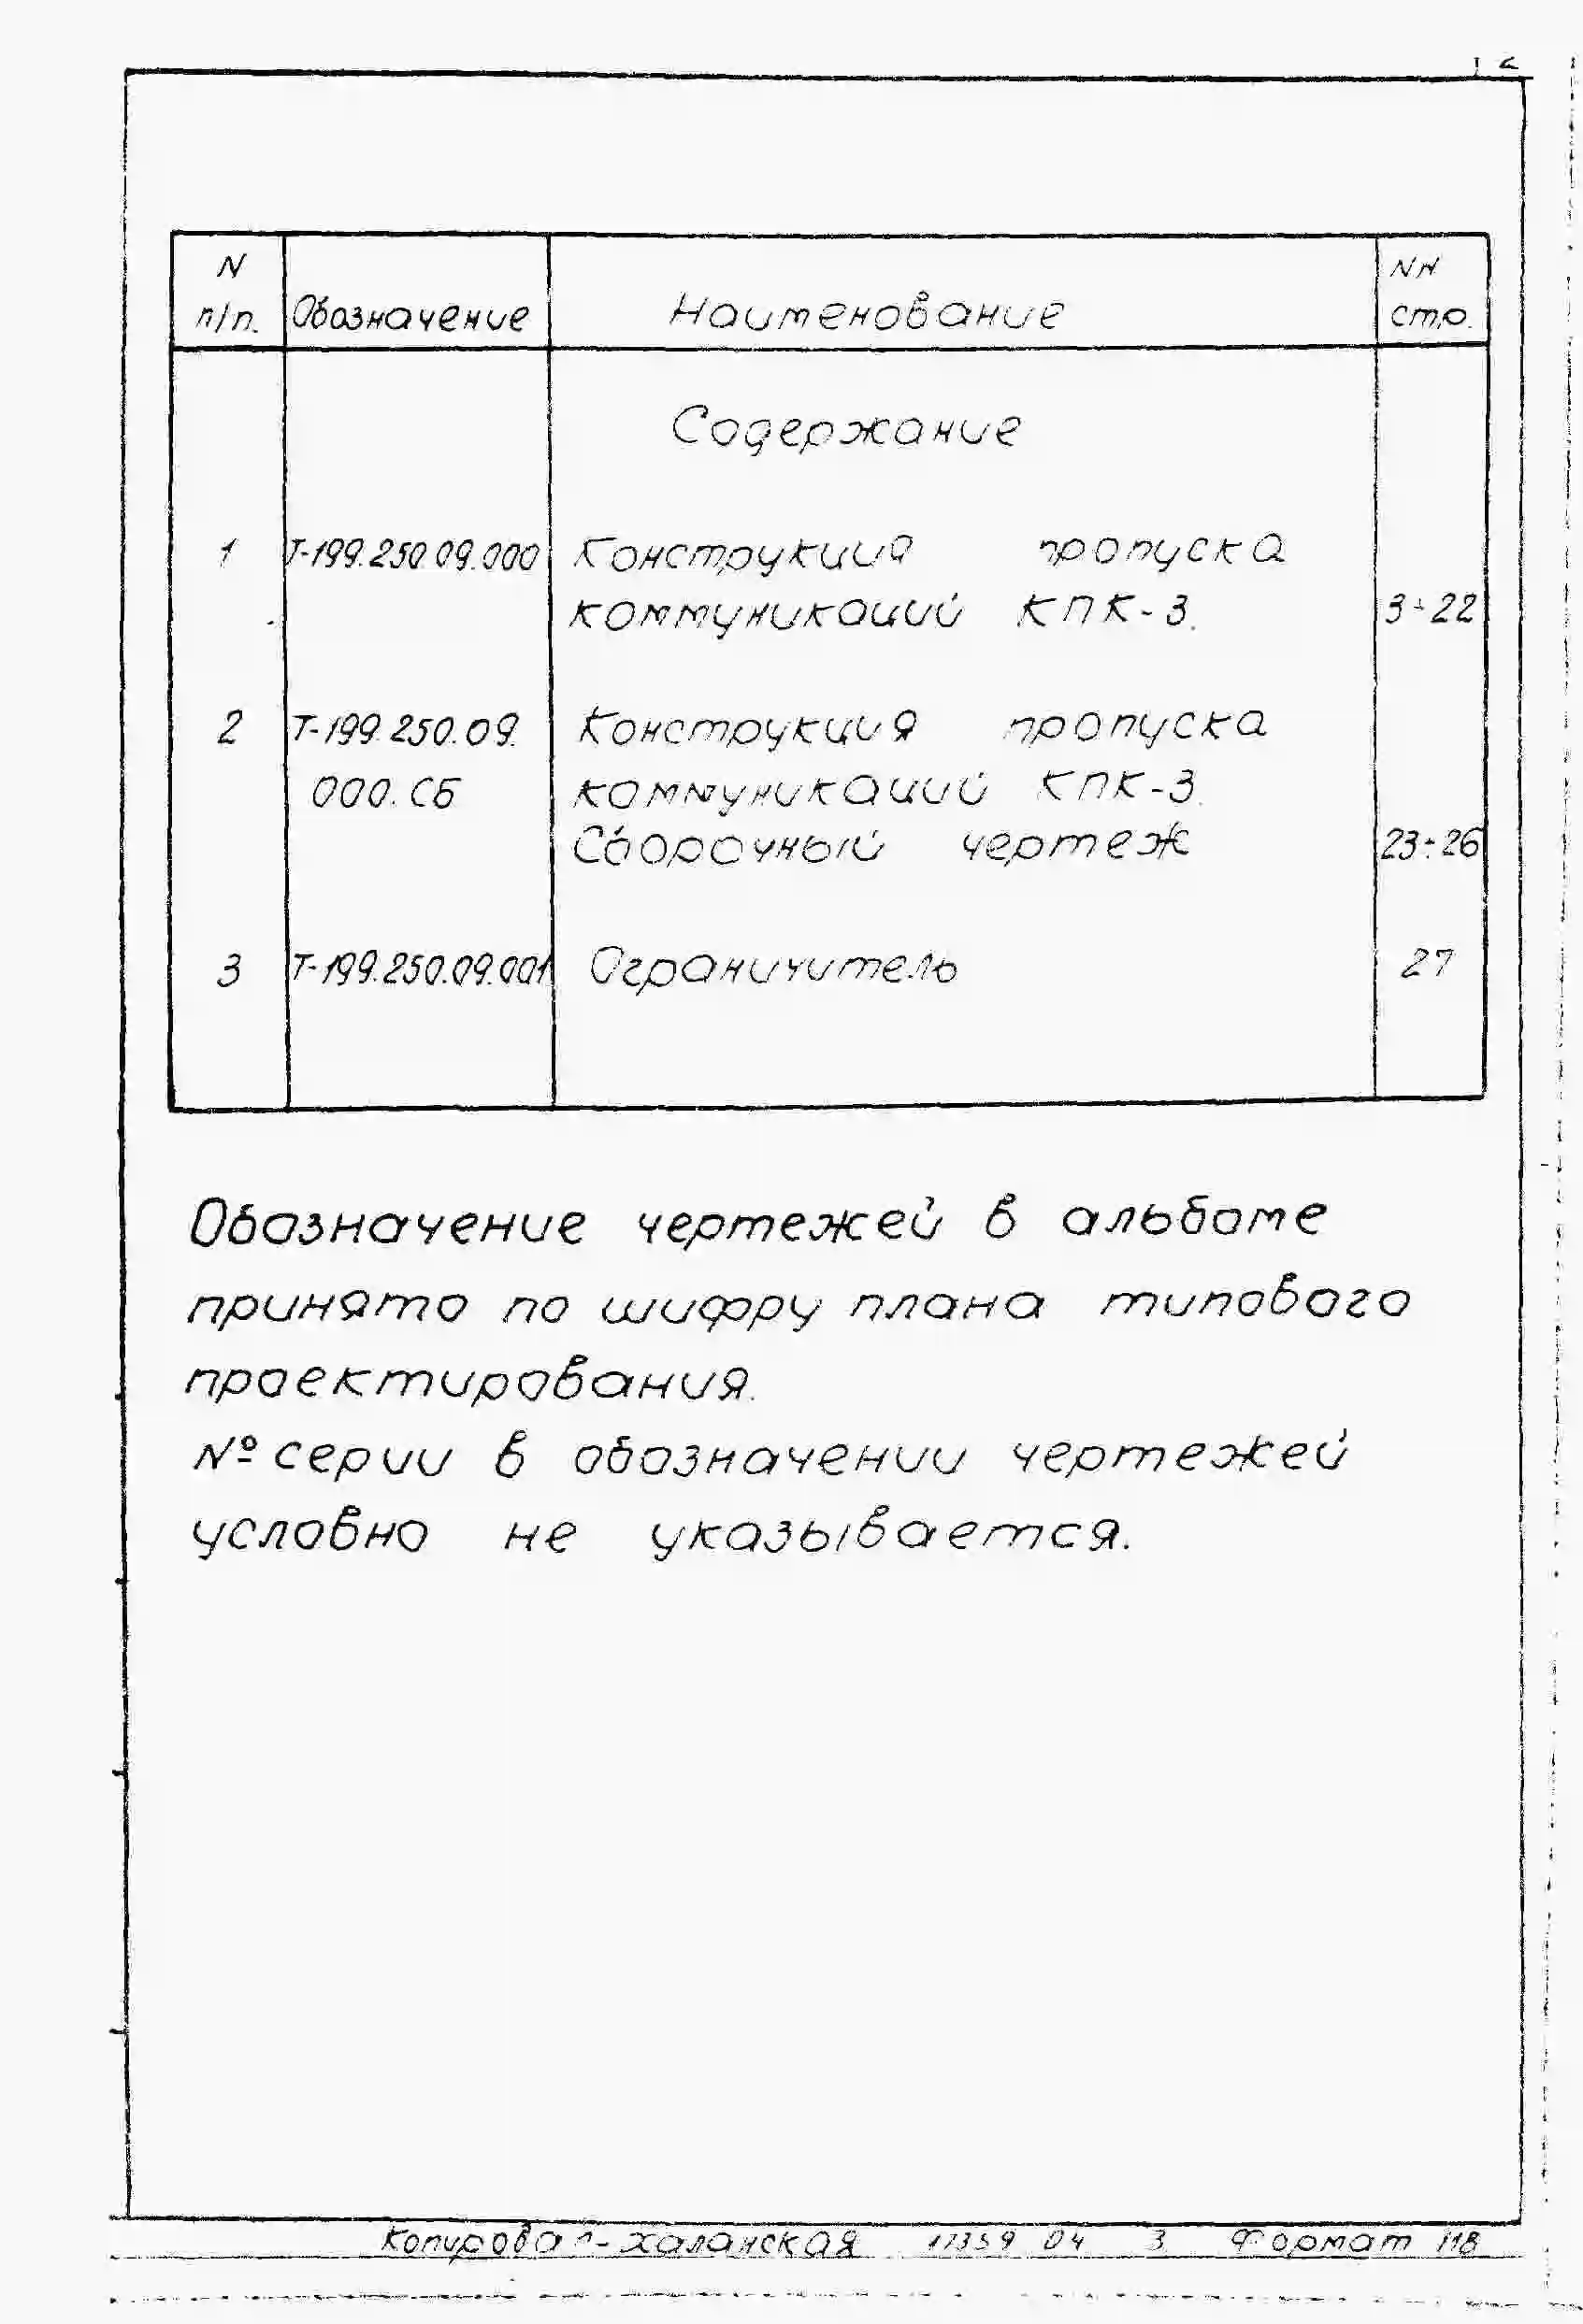 2
N п/п. Обозначение Наименование NN стр.
Содержание
1 Т-199.250.09.000 Конструкция пропуска
коммуникаций КПК-3. 3÷22
2 Т-199.250.09. Конструкция пропуска
000.СБ коммуникаций КПК-3.
Сборочный чертеж 23÷26
3 Т-199.250.09.001 Ограничитель 27
Обозначение чертежей в альбоме
принято по шифру плана типового
проектирования.
№ серии в обозначении чертежей
условно не указывается.
Копировал - Халанская 17359 04 3 Формат 11В